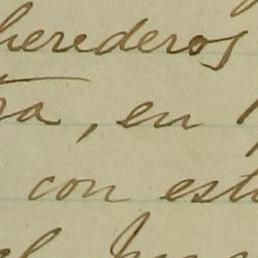 herederos
ra, en
con est